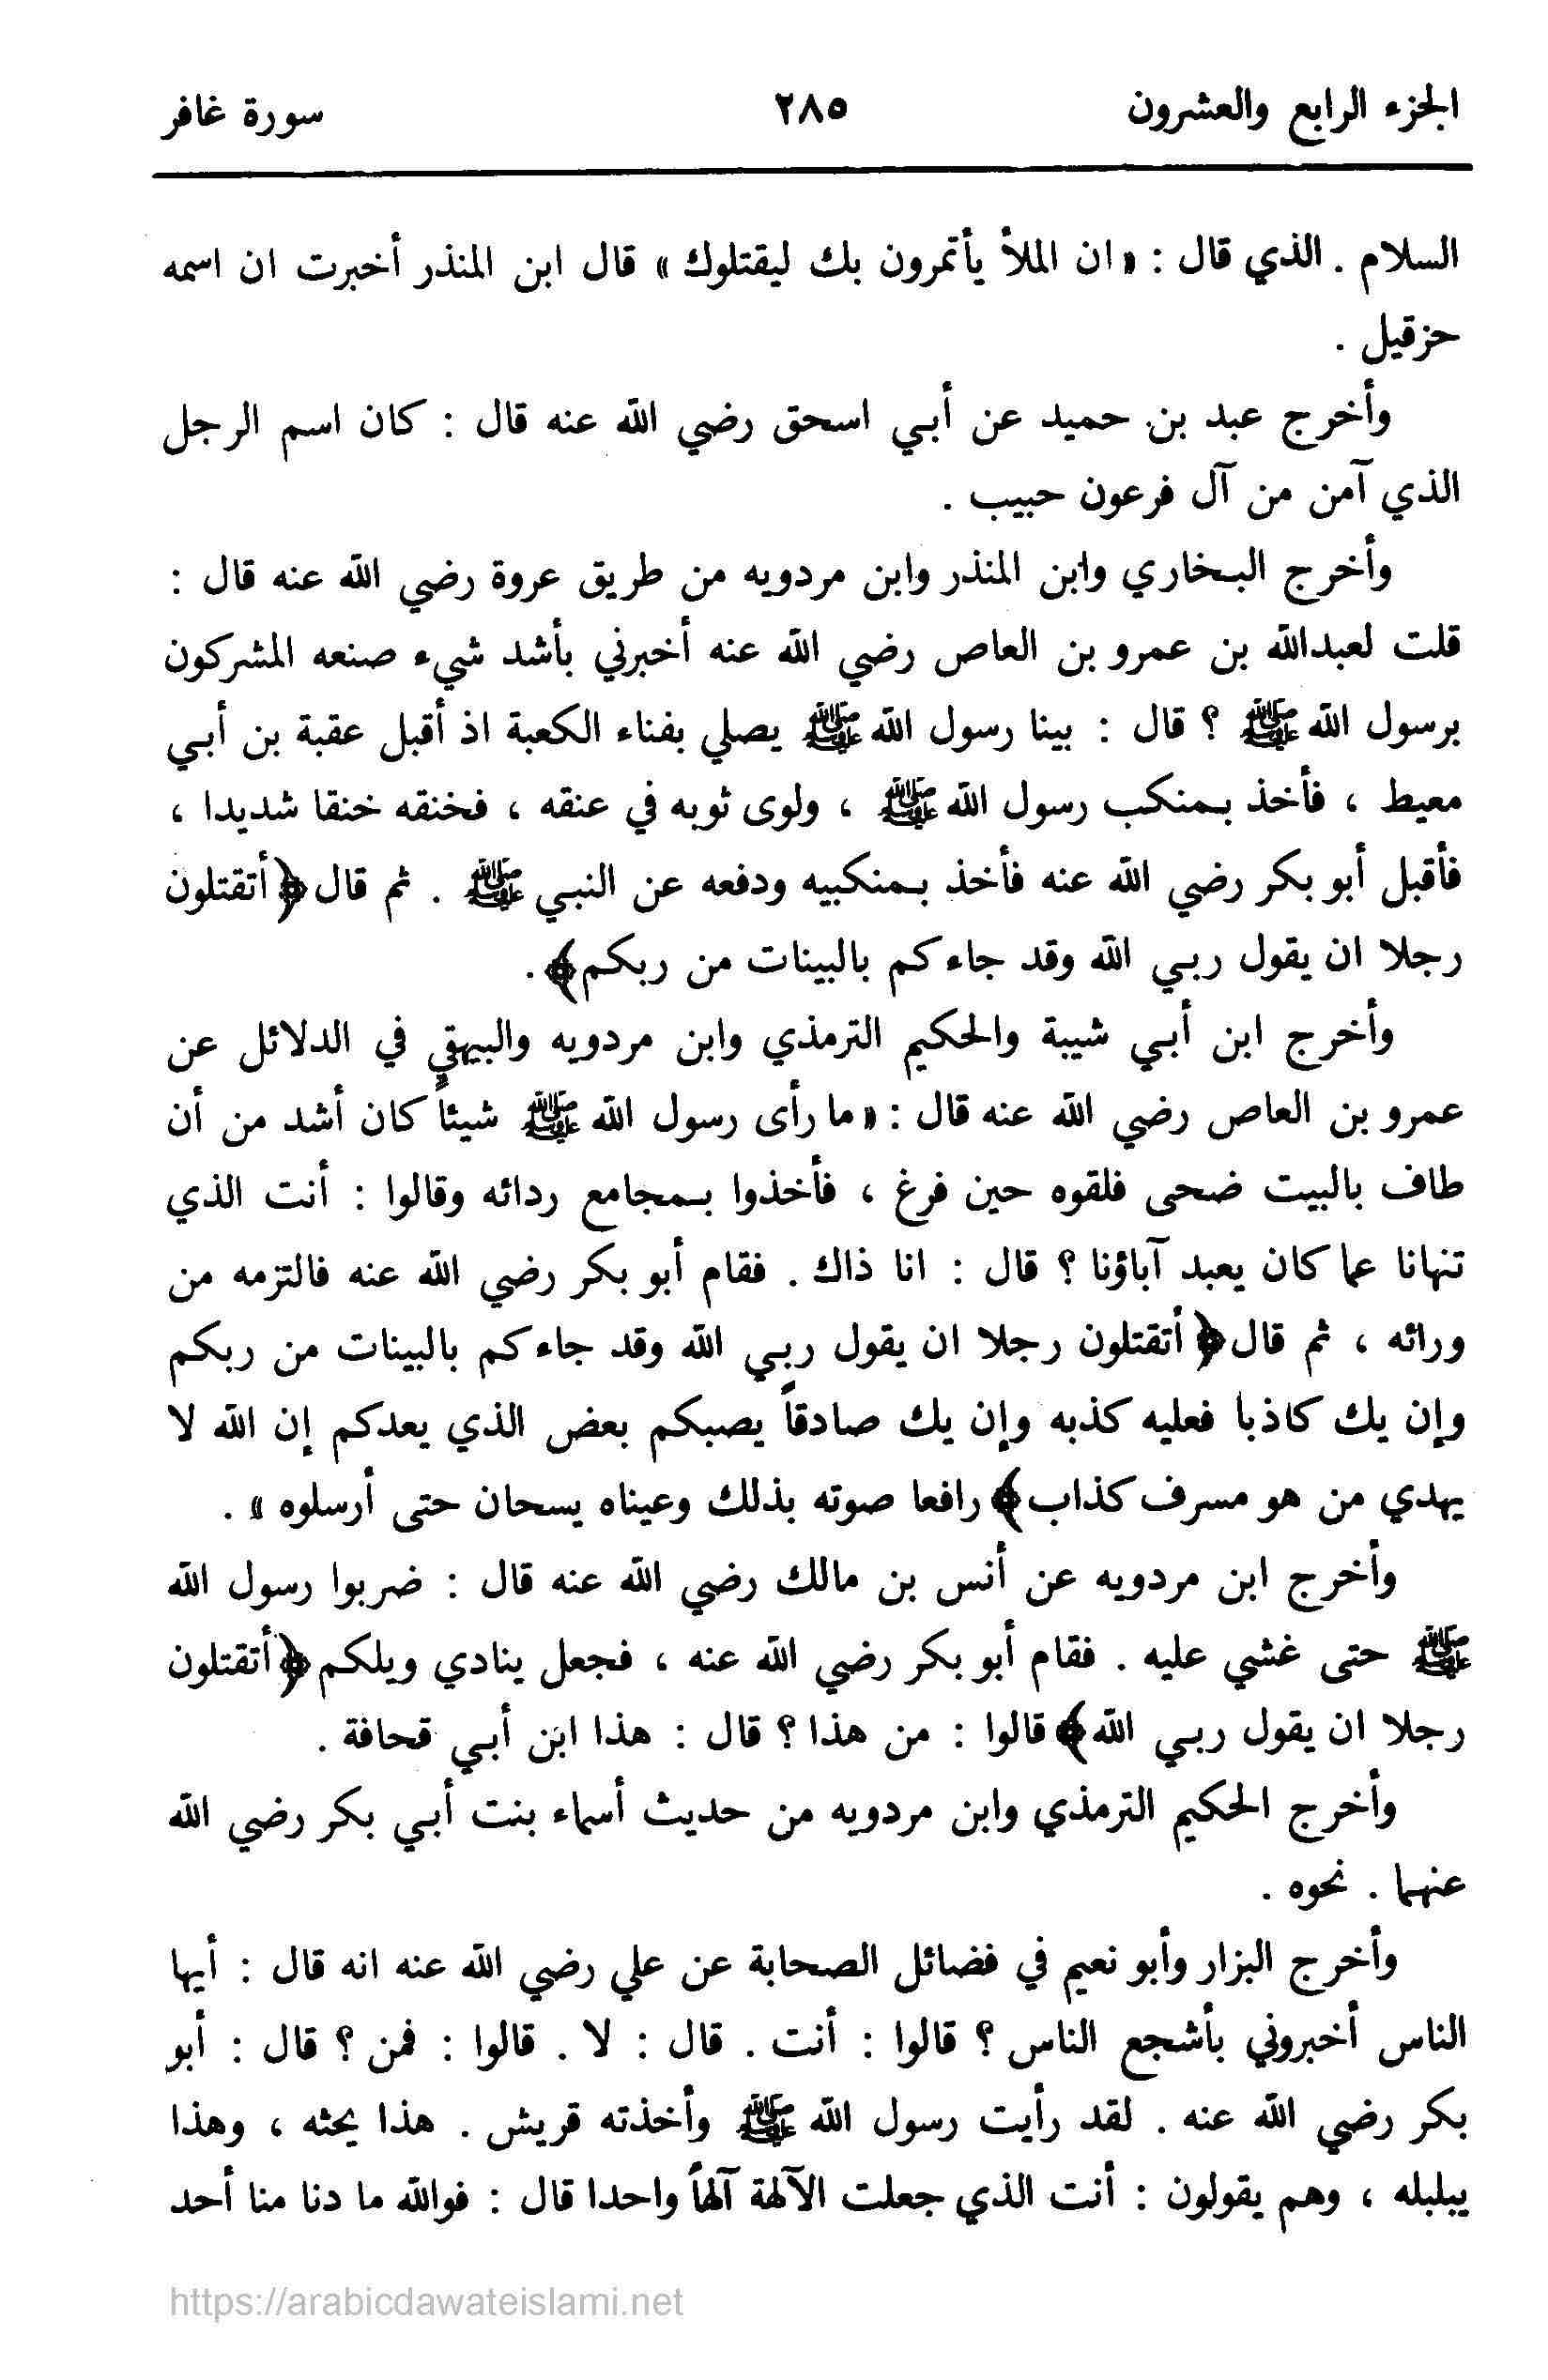 الجزء الرابع والعشرون ٢٨٥ سورة غافر
السلام . الذي قال : « ان الملأ يأتمرون بك ليقتلوك » قال ابن المنذر أخبرت ان اسمه
حزقيل .
وأخرج عبد بن حميد عن أبي اسحق رضي الله عنه قال : كان اسم الرجل
الذي آمن من آل فرعون حبيب .
وأخرج البخاري وابن المنذر وابن مردويه من طريق عروة رضي الله عنه قال :
قلت لعبدالله بن عمرو بن العاص رضي الله عنه أخبرني بأشد شيء صنعه المشركون
برسول الله ﷺ ؟ قال : بينا رسول الله ﷺ يصلي بفناء الكعبة اذ أقبل عقبة بن أبي
معيط ، فأخذ بمنكب رسول الله ﷺ ، ولوى ثوبه في عنقه ، فخنقه خنقا شديدا ،
فأقبل أبو بكر رضي الله عنه فأخذ بمنكبيه ودفعه عن النبي ﷺ . ثم قال ﴿ أتقتلون
رجلا ان يقول ربي الله وقد جاءكم بالبينات من ربكم ﴾ .
وأخرج ابن أبي شيبة والحكيم الترمذي وابن مردويه والبيهقي في الدلائل عن
عمرو بن العاص رضي الله عنه قال : « ما رأى رسول الله ﷺ شيئاً كان أشد من أن
طاف بالبيت ضحى فلقوه حين فرغ ، فأخذوا بمجامع ردائه وقالوا : أنت الذي
تنهانا عما كان يعبد آباؤنا ؟ قال : انا ذاك . فقام أبو بكر رضي الله عنه فالتزمه من
ورائه ، ثم قال ﴿ أتقتلون رجلا ان يقول ربي الله وقد جاءكم بالبينات من ربكم
وإن يك كاذبا فعليه كذبه وإن يك صادقاً يصبكم بعض الذي يعدكم إن الله لا
يهدي من هو مسرف كذاب ﴾ رافعا صوته بذلك وعيناه يسحان حتى أرسلوه » .
وأخرج ابن مردويه عن أنس بن مالك رضي الله عنه قال : ضربوا رسول الله
ﷺ حتى غشي عليه . فقام أبو بكر رضي الله عنه ، فجعل ينادي ويلكم ﴿ أتقتلون
رجلا ان يقول ربي الله ﴾ قالوا : من هذا ؟ قال : هذا ابن أبي قحافة .
وأخرج الحكيم الترمذي وابن مردويه من حديث أسماء بنت أبي بكر رضي الله
عنهما . نحوه .
وأخرج البزار وأبو نعيم في فضائل الصحابة عن علي رضي الله عنه انه قال : أيها
الناس أخبروني بأشجع الناس ؟ قالوا : أنت . قال : لا . قالوا : فمن ؟ قال : أبو
بكر رضي الله عنه . لقد رأيت رسول الله ﷺ وأخذته قريش . هذا يحثه ، وهذا
يبلبله ، وهم يقولون : أنت الذي جعلت الآلهة آلهاً واحدا قال : فوالله ما دنا منا أحد
https://arabicdawateislami.net